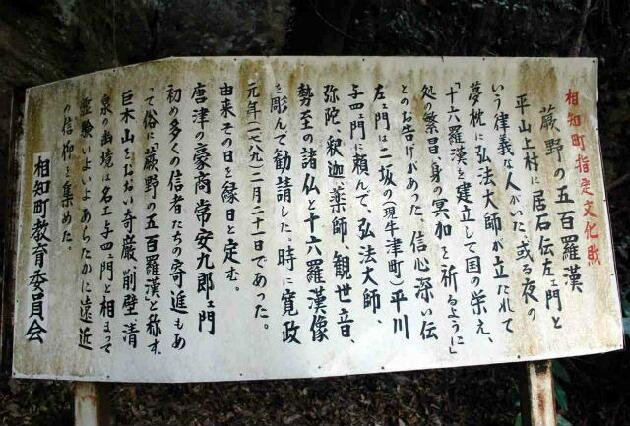 相知町指定文化財
蕨野の五百羅漢
平山上村に居石伝左ェ門と
いう律義な人がいた、或る夜の
夢枕に弘法大師が立たれて
「十六羅漢を建立して国の栄え、
処の繁昌、身の冥加を祈るように」
とのお告げがあった。信心深い伝
左ェ門は二坂の(現牛津町)平川
与四ェ門に頼んで、弘法大師、
弥陀、釈迦、薬師、観世音、
勢至の諸仏と十六羅漢像
を彫んで勧請した。時に寛政
元年(一七八九)二月二十一日であった。
由来その日を縁日と定む。
唐津の豪商常安九郎ェ門
初め多くの信者たちの寄進もあ
って俗に「蕨野の五百羅漢」と称す。
巨木山をおおい奇巌、削壁、清
泉の幽境は名工与四ェ門と相まって
霊験いよいよあらたかに遠近
の信仰を集めた。
相知町教育委員会